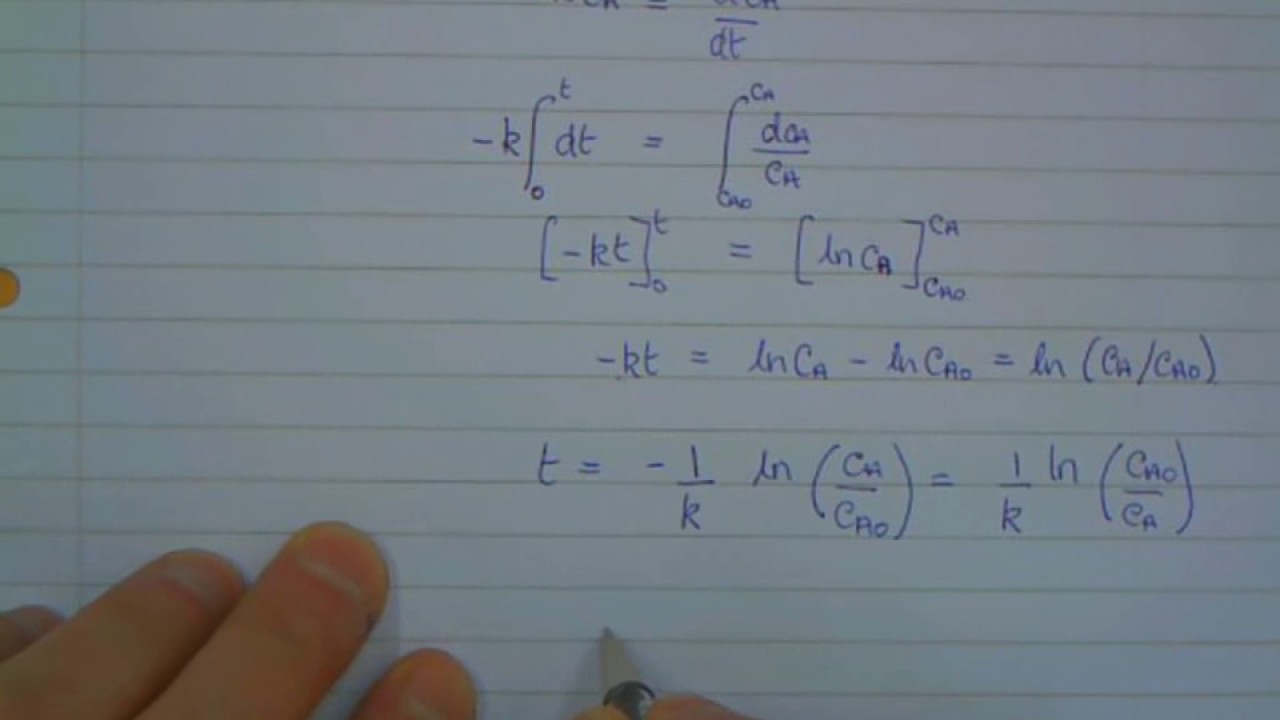 dt
-k ∫₀ᵗ dt = ∫_{CA0}^{CA} dCA/CA
[-kt]₀ᵗ = [ln CA]_{CA0}^{CA}
-kt = ln CA - ln CA0 = ln (CA/CA0)
t = -1/k ln (CA/CA0) = 1/k ln (CA0/CA)